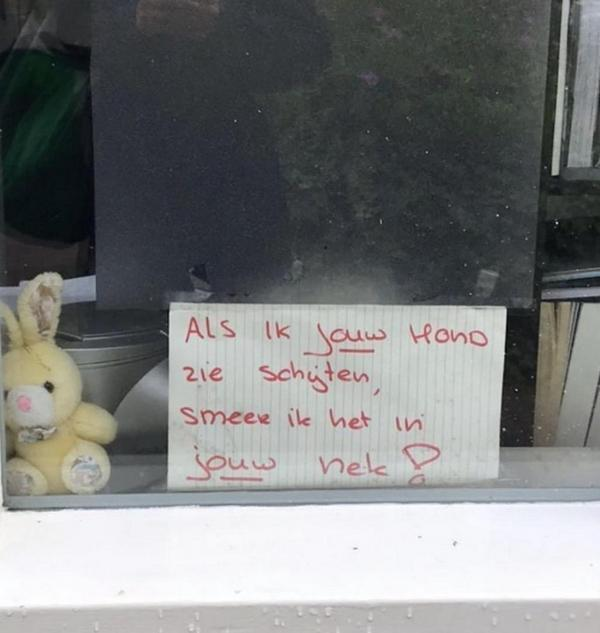 ALS IK jouw HOND
zie schijten,
smeer ik het in
jouw nek!